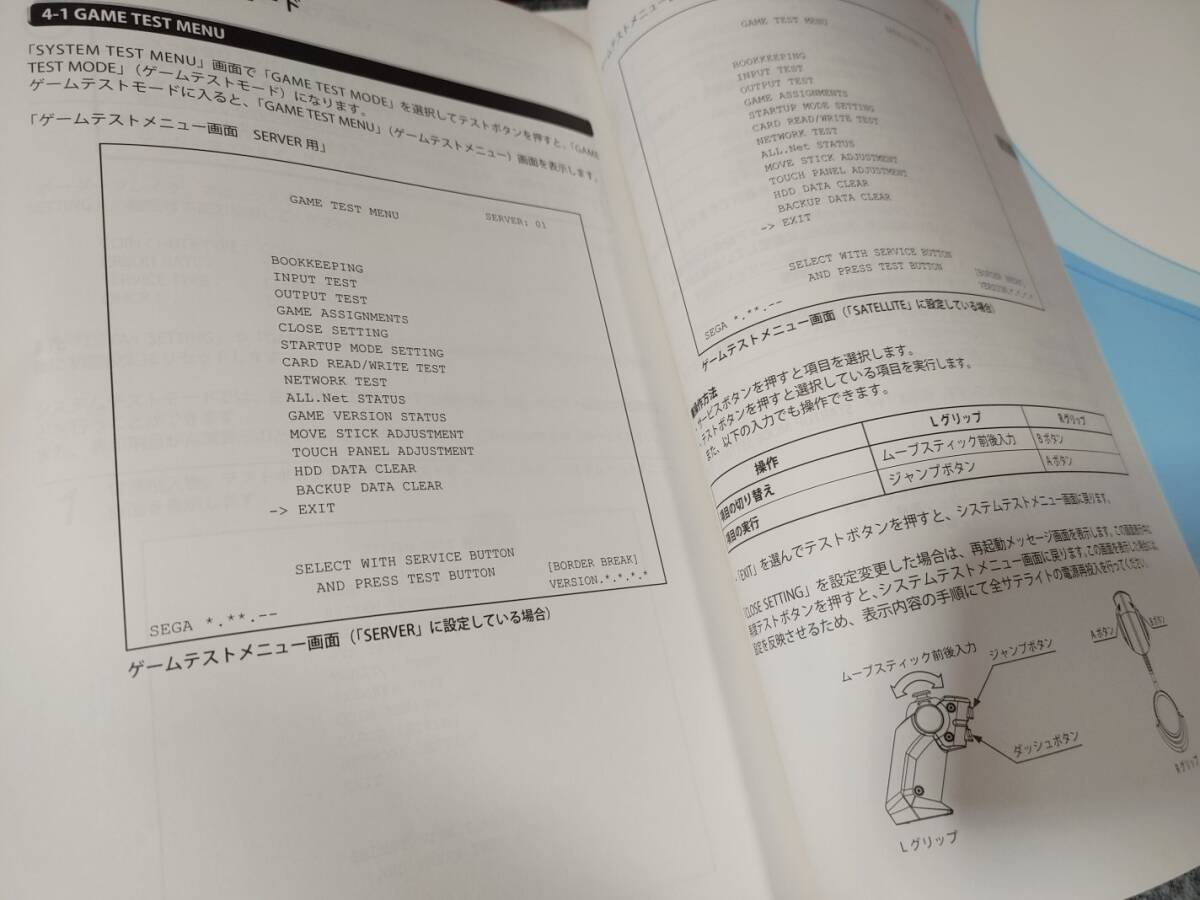 ード
4-1 GAME TEST MENU
「SYSTEM TEST MENU」画面で「GAME TEST MODE」を選択してテストボタンを押すと、「GAME
TEST MODE」（ゲームテストモード）になります。
ゲームテストモードに入ると、「GAME TEST MENU」（ゲームテストメニュー）画面を表示します。
「ゲームテストメニュー画面　SERVER 用」
GAME TEST MENU
SERVER: 01
BOOKKEEPING
INPUT TEST
OUTPUT TEST
GAME ASSIGNMENTS
CLOSE SETTING
STARTUP MODE SETTING
CARD READ/WRITE TEST
NETWORK TEST
ALL.Net STATUS
GAME VERSION STATUS
MOVE STICK ADJUSTMENT
TOUCH PANEL ADJUSTMENT
HDD DATA CLEAR
BACKUP DATA CLEAR
-> EXIT
SELECT WITH SERVICE BUTTON
AND PRESS TEST BUTTON
[BORDER BREAK]
VERSION.*.*.*.*
SEGA *.**.--
ゲームテストメニュー画面（「SERVER」に設定している場合）
ームテストメニュー画面
GAME TEST MENU
BOOKKEEPING
INPUT TEST
OUTPUT TEST
GAME ASSIGNMENTS
STARTUP MODE SETTING
CARD READ/WRITE TEST
NETWORK TEST
ALL.Net STATUS
MOVE STICK ADJUSTMENT
TOUCH PANEL ADJUSTMENT
HDD DATA CLEAR
BACKUP DATA CLEAR
-> EXIT
SELECT WITH SERVICE BUTTON
AND PRESS TEST BUTTON
[BORDER BREAK]
VERSION.*.*.*.*
SEGA *.**.--
ゲームテストメニュー画面（「SATELLITE」に設定している場合）
操作方法
サービスボタンを押すと項目を選択します。
テストボタンを押すと選択している項目を実行します。
また、以下の入力でも操作できます。
操作 Lグリップ Rグリップ
項目の切り替え ムーブスティック前後入力 Bボタン
項目の実行 ジャンプボタン Aボタン
「EXIT」を選んでテストボタンを押すと、システムテストメニュー画面に戻ります。
「CLOSE SETTING」を設定変更した場合は、再起動メッセージ画面を表示します。この画面表示中に
テストボタンを押すと、システムテストメニュー画面に戻ります。この画面を表示した場合は、
設定を反映させるため、表示内容の手順にて全サテライトの電源再投入を行ってください。
ムーブスティック前後入力
ジャンプボタン
ダッシュボタン
Lグリップ
Aボタン
Bボタン
Rグリップ